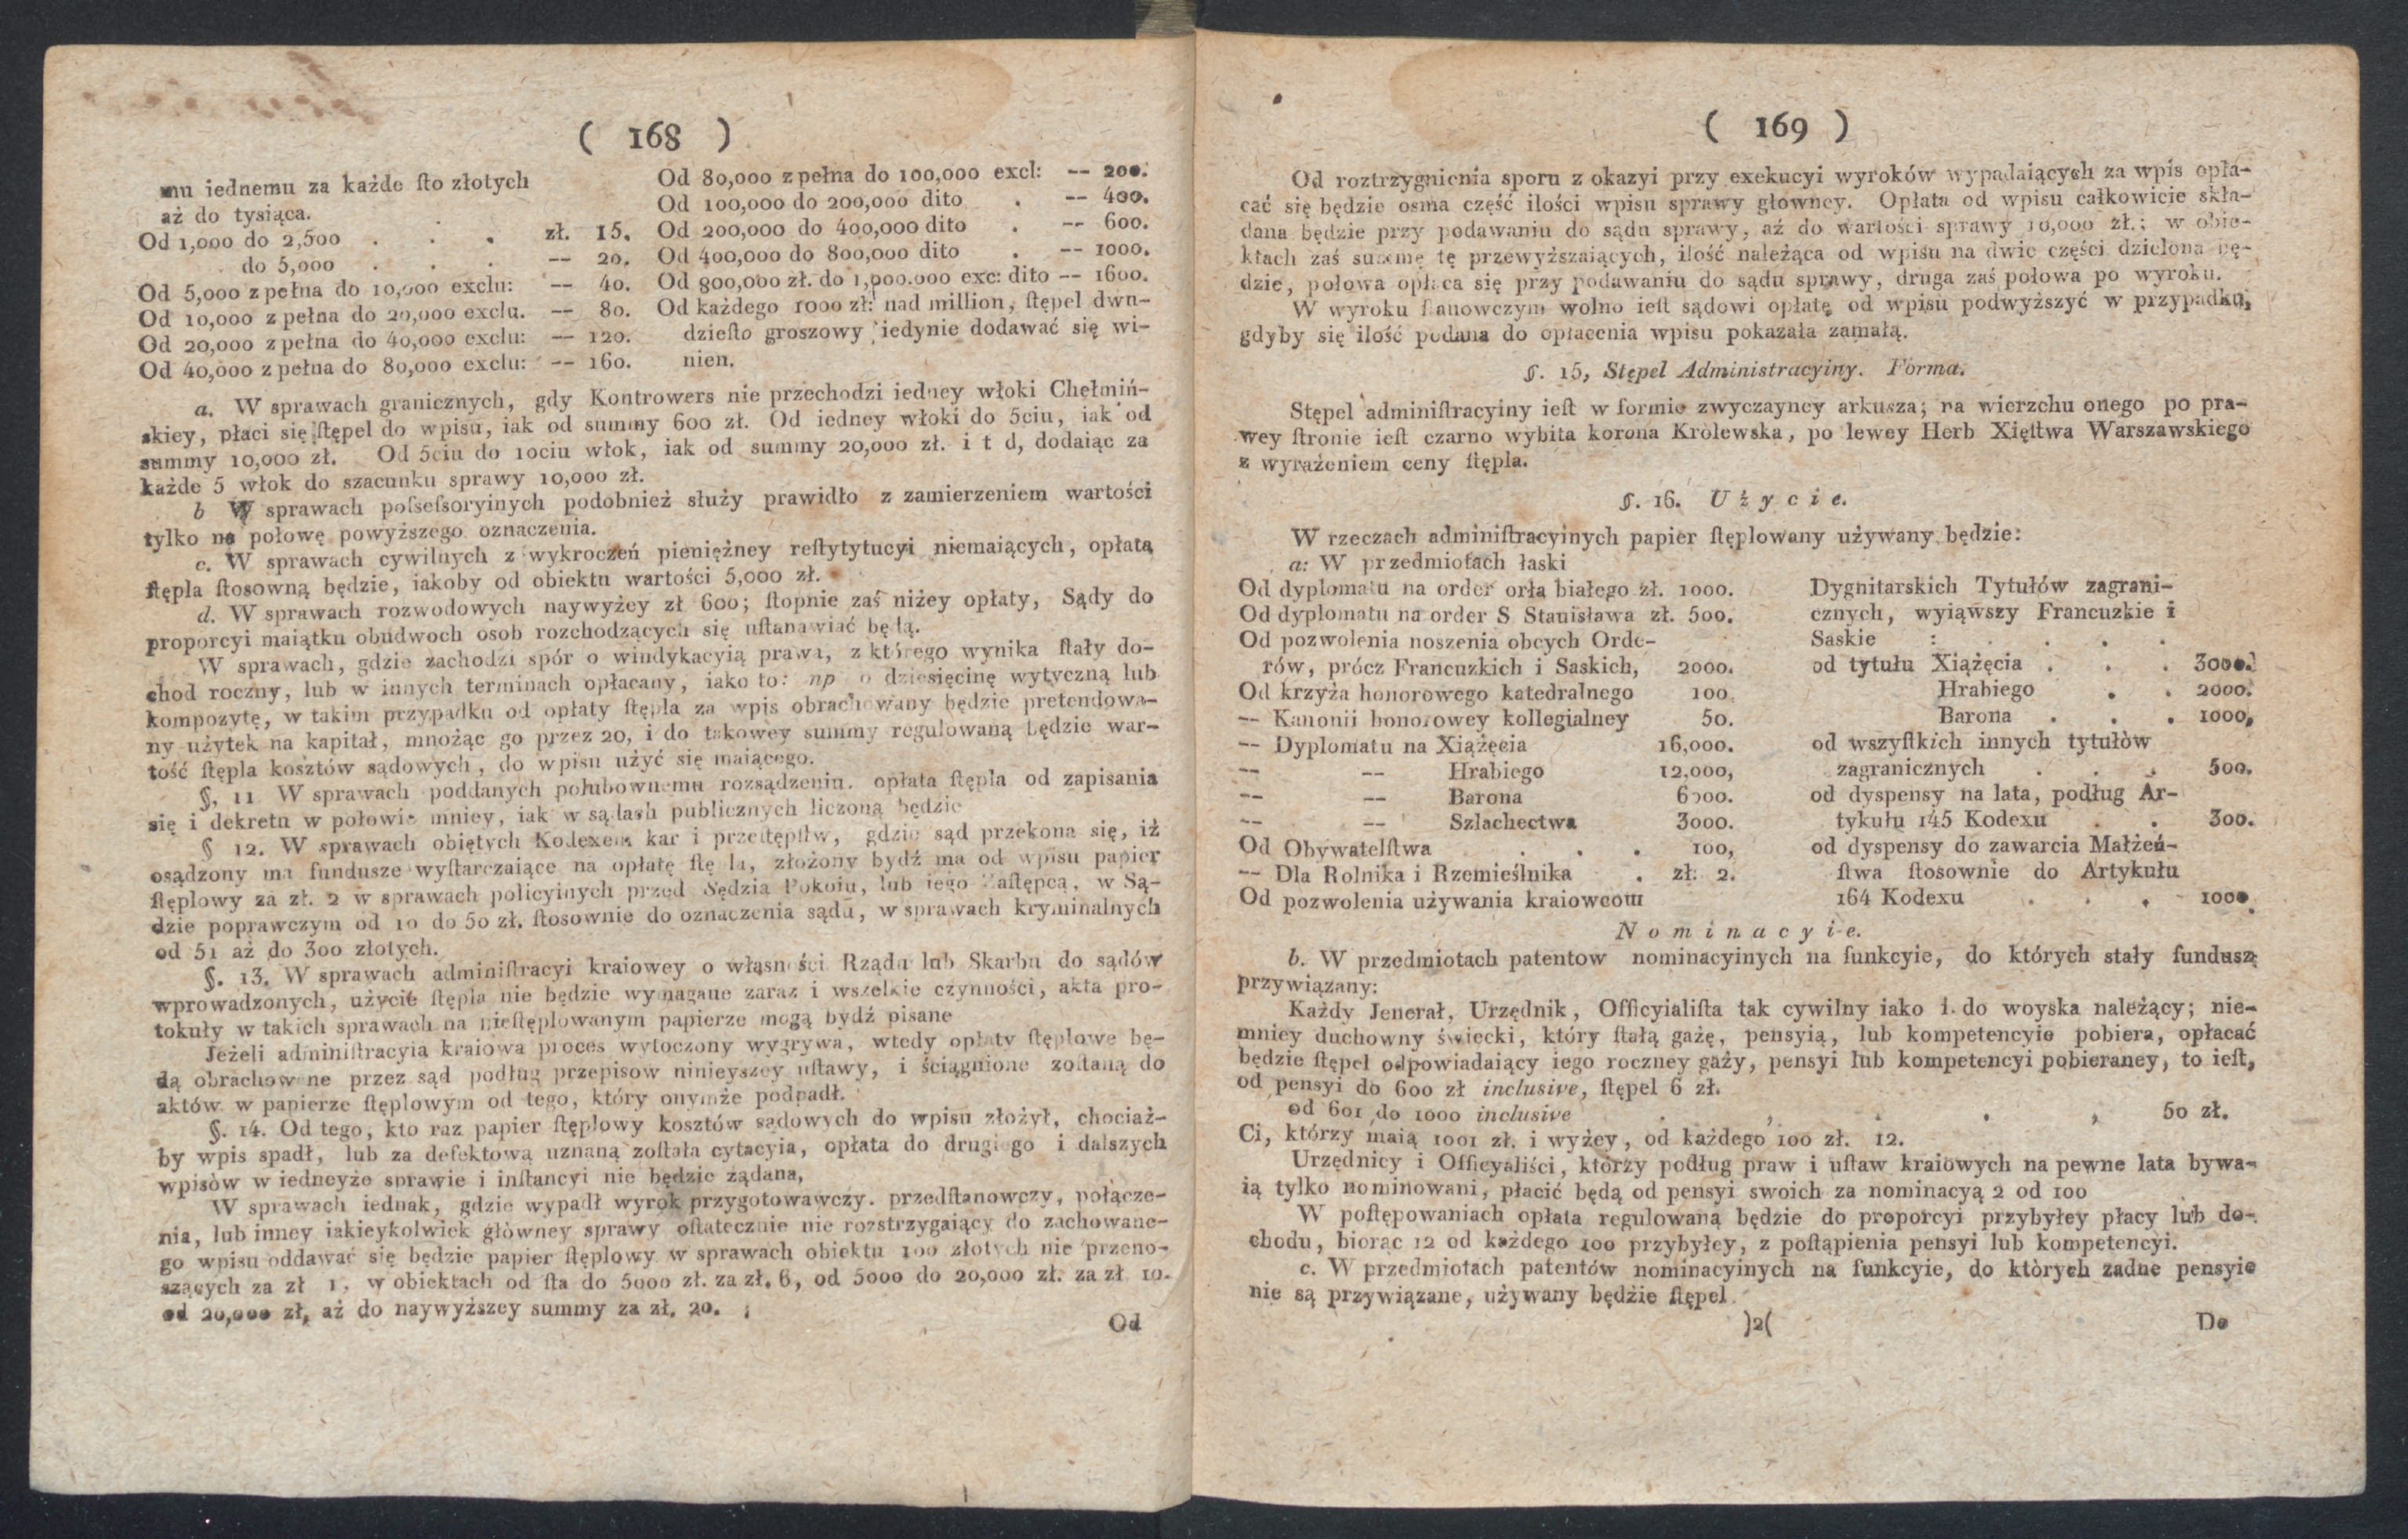 ( 168 )
mu iednemu za każde ſto złotych
aż do tysiąca.
Od 1,000 do 2,500 . . . zł. 15.
do 5,000 . . . -- 20.
Od 5,000 z pełna do 10,000 exclu: -- 40.
Od 10,000 z pełna do 20,000 exclu. -- 80.
Od 20,000 z pełna do 40,000 exclu: -- 120.
Od 40,000 z pełna do 80,000 exclu: -- 160.
Od 80,000 z pełna do 100,000 excl: -- 200.
Od 100,000 do 200,000 dito . -- 400.
Od 200,000 do 400,000 dito . -- 600.
Od 400,000 do 800,000 dito . -- 1000.
Od 800,000 zł. do 1,000.000 exc: dito -- 1600.
Od każdego 1000 zł: nad million, ſtępel dwu-
dzieſto groszowy iedynie dodawać się wi-
nien.
a. W sprawach granicznych, gdy Kontrowers nie przechodzi iedney włoki Chełmiń-
skiey, płaci się ſtępel do wpisu, iak od summy 600 zł. Od iedney włoki do 5ciu, iak od
summy 10,000 zł. Od 5ciu do 10ciu włok, iak od summy 20,000 zł. i t d, dodaiąc za
każde 5 włok do szacunku sprawy 10,000 zł.
b W sprawach poſseſsoryinych podobnież służy prawidło z zamierzeniem wartości
tylko na połowę powyższego oznaczenia.
c. W sprawach cywilnych z wykroczeń pieniężney reſtytytucyi niemaiących, opłata
ſtępla ſtosowną będzie, iakoby od obiektu wartości 5,000 zł.
d. W sprawach rozwodowych naywyżey zł 600; ſtopnie zaś niżey opłaty, Sądy do
proporcyi maiątku obudwoch osob rozchodzących się uſtanawiać będą.
W sprawach, gdzie zachodzi spór o windykacyią prawa, z którego wynika ſtały do-
chod roczny, lub w innych terminach opłacany, iako to: np o dziesięcinę wytyczną lub
kompozytę, w takim przypadku od opłaty ſtępla za wpis obrachowany będzie pretendowa-
ny użytek na kapitał, mnożąc go przez 20, i do takowey summy regulowaną będzie war-
tość ſtępla kosztów sądowych, do wpisu użyć się maiącego.
§. 11 W sprawach poddanych polubownemu rozsądzeniu. opłata ſtępla od zapisania
się i dekretu w połowie mniey, iak w sądach publicznych liczoną będzie
§ 12. W sprawach obiętych Kodexem kar i przeſtępſtw, gdzie sąd przekona się, iż
osądzony ma fundusze wyſtarczaiące na opłatę ſtępla, złożony bydź ma od wpisu papier
ſtęplowy za zł. 2 w sprawach policyinych przed Sędzia Pokoiu, lub iego Zaſtępcą, w Są-
dzie poprawczym od 10 do 50 zł. ſtosownie do oznaczenia sądu, w sprawach kryminalnych
od 51 aż do 300 złotych.
§. 13. W sprawach adminiſtracyi kraiowey o własności Rządu lub Skarbu do sądów
wprowadzonych, użycie ſtępla nie będzie wymagane zaraz i wszelkie czynności, akta pro-
tokuły w takich sprawach na nieſtęplowanym papierze mogą bydź pisane
Jeżeli adminiſtracyia kraiowa proces wytoczony wygrywa, wtedy opłaty ſtęplowe bę-
dą obrachowane przez sąd podług przepisow ninieyszey uſtawy, i ściągnione zoſtaną do
aktów w papierze ſtęplowym od tego, który onymże podpadł.
§. 14. Od tego, kto raz papier ſtęplowy kosztów sądowych do wpisu złożył, chociaż-
by wpis spadł, lub za defektową uznaną zoſtała cytacyia, opłata do drugiego i dalszych
wpisów w iedneyże sprawie i inſtancyi nie będzie żądana,
W sprawach iednak, gdzie wypadł wyrok przygotowawczy. przedſtanowczy, połącze-
nia, lub inney iakieykolwiek główney sprawy oſtatecznie nie rozstrzygaiący do zachowane-
go wpisu oddawać się będzie papier ſtęplowy w sprawach obiektu 100 złotych nie przeno-
szących za zł 1, w obiektach od ſta do 5000 zł. za zł. 6, od 5000 do 20,000 zł. za zł 10.
od 20,000 zł, aż do naywyższey summy za zł. 20.
Od
( 169 )
Od roztrzygnienia sporu z okazyi przy exekucyi wyroków wypadaiących za wpis opła-
cać się będzie osma część ilości wpisu sprawy główney. Opłata od wpisu całkowicie skła-
dana będzie przy podawaniu do sądu sprawy, aż do wartości sprawy 10,000 zł.; w obie-
ktach zaś summę tę przewyższaiących, ilość należąca od wpisu na dwie części dzielona bę-
dzie, połowa opłaca się przy podawaniu do sądu sprawy, druga zaś połowa po wyroku.
W wyroku ſtanowczym wolno ieſt sądowi opłatę od wpisu podwyższyć w przypadku,
gdyby się ilość podana do opłacenia wpisu pokazała zamałą.
§. 15, Stępel Administracyiny. Forma.
Stępel adminiſtracyiny ieſt w formie zwyczayney arkusza; na wierzchu onego po pra-
wey ſtronie ieſt czarno wybita korona Królewska, po lewey Herb Xięſtwa Warszawskiego
z wyrażeniem ceny ſtępla.
§. 16. Użycie.
W rzeczach adminiſtracyinych papier ſtęplowany używany będzie:
a: W przedmiotach łaski
Od dyplomatu na order orła białego zł. 1000.
Od dyplomatu na order S Stanisława zł. 500.
Od pozwolenia noszenia obcych Orde-
rów, prócz Francuzkich i Saskich, 2000.
Od krzyża honorowego katedralnego 100.
-- Kanonii honorowey kollegialney 50.
-- Dyplomatu na Xiążęcia 16,000.
-- -- Hrabiego 12,000,
-- -- Barona 6000.
-- -- Szlachectwa 3000.
Od Obywatelſtwa . . . 100,
-- Dla Rolnika i Rzemieślnika . zł: 2.
Od pozwolenia używania kraiowcom
Dygnitarskich Tytułów zagrani-
cznych, wyiąwszy Francuzkie i
Saskie : . . . .
od tytułu Xiążęcia . . . 3000.
Hrabiego . . 2000.
Barona . . . 1000,
od wszyſtkich innych tytułów
zagranicznych . . . 500.
od dyspensy na lata, podług Ar-
tykułu 145 Kodexu . . 300.
od dyspensy do zawarcia Małżeń-
ſtwa ſtosownie do Artykułu
164 Kodexu . . . 1000
Nominacyie.
b. W przedmiotach patentow nominacyinych na funkcyie, do których stały fundusz
przywiązany:
Każdy Jenerał, Urzędnik, Officyialiſta tak cywilny iako i do woyska należący; nie-
mniey duchowny świecki, który ſtałą gażę, pensyią, lub kompetencyie pobiera, opłacać
będzie ſtępel odpowiadaiący iego roczney gaży, pensyi lub kompetencyi pobieraney, to ieſt,
od pensyi do 600 zł inclusive, ſtępel 6 zł.
od 601 do 1000 inclusive . , . . , 50 zł.
Ci, którzy maią 1001 zł. i wyżey, od każdego 100 zł. 12.
Urzędnicy i Officyaliści, którzy podług praw i uſtaw kraiowych na pewne lata bywa-
ią tylko nominowani, płacić będą od pensyi swoich za nominacyą 2 od 100
W poſtępowaniach opłata regulowaną będzie do proporcyi przybyłey płacy lub do-
chodu, biorąc 12 od każdego 100 przybyłey, z poſtąpienia pensyi lub kompetencyi.
c. W przedmiotach patentów nominacyinych na funkcyie, do których żadne pensyie
nie są przywiązane, używany będzie ſtępel
)2(
Do